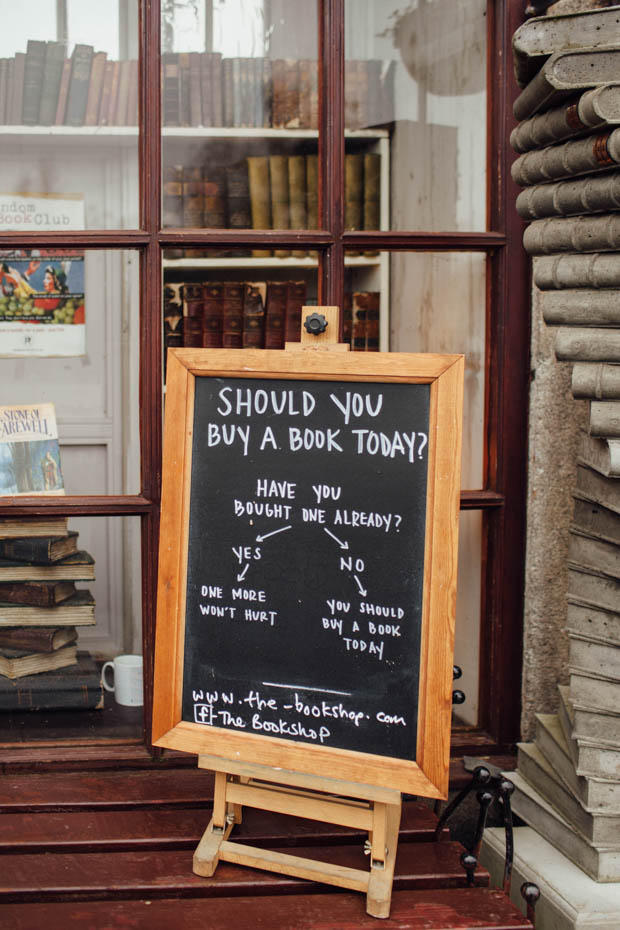 ndom
BookClub
STONE OF
FAREWELL
SHOULD YOU
BUY A BOOK TODAY?
HAVE YOU
BOUGHT ONE ALREADY?
YES
NO
ONE MORE
WON'T HURT
YOU SHOULD
BUY A BOOK
TODAY
www.the-bookshop.com
f The Bookshop